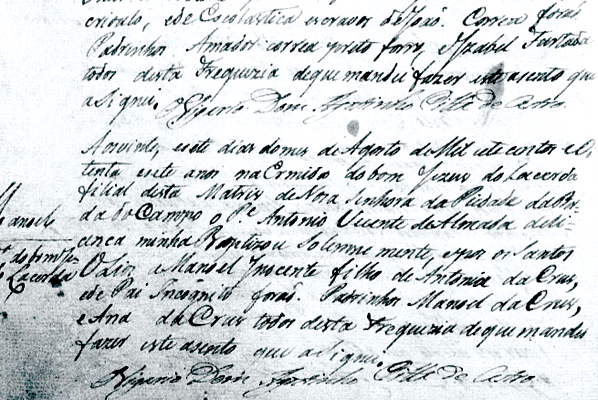 crioulo, e de Escolastica escravos de João. Correa forão
Padrinhos Amador correa preto forro, Yzabel Furtada
todos desta Freguezia de que mandei fazer este asento que
aSignei. O Vigario Dom. Agostinho Pitta de Castro
Aos vinte, e sete dias do mes de Agosto de Mil e sete centos e Oi
tenta e sete anos na Ermida do bom Jezus do Lacerda
filial desta Matriz de Nosa Senhora da Piedade da Bor
da do Campo o Pe Antonio Vicente de Almada de li
cenca minha Baptizou Solemne mente, e pos os Santos
O Lios a Manoel Inocente filho de Antonia da Crus,
e de Pai Incognito forão. Padrinhos Manoel da Crus,
e Ana da Crus todos desta Freguezia de que mandei
fazer este asento que aSignei.
O Vigario Dom. Agostinho Pitta de Castro
Manoel
do bom Je
Lacerda